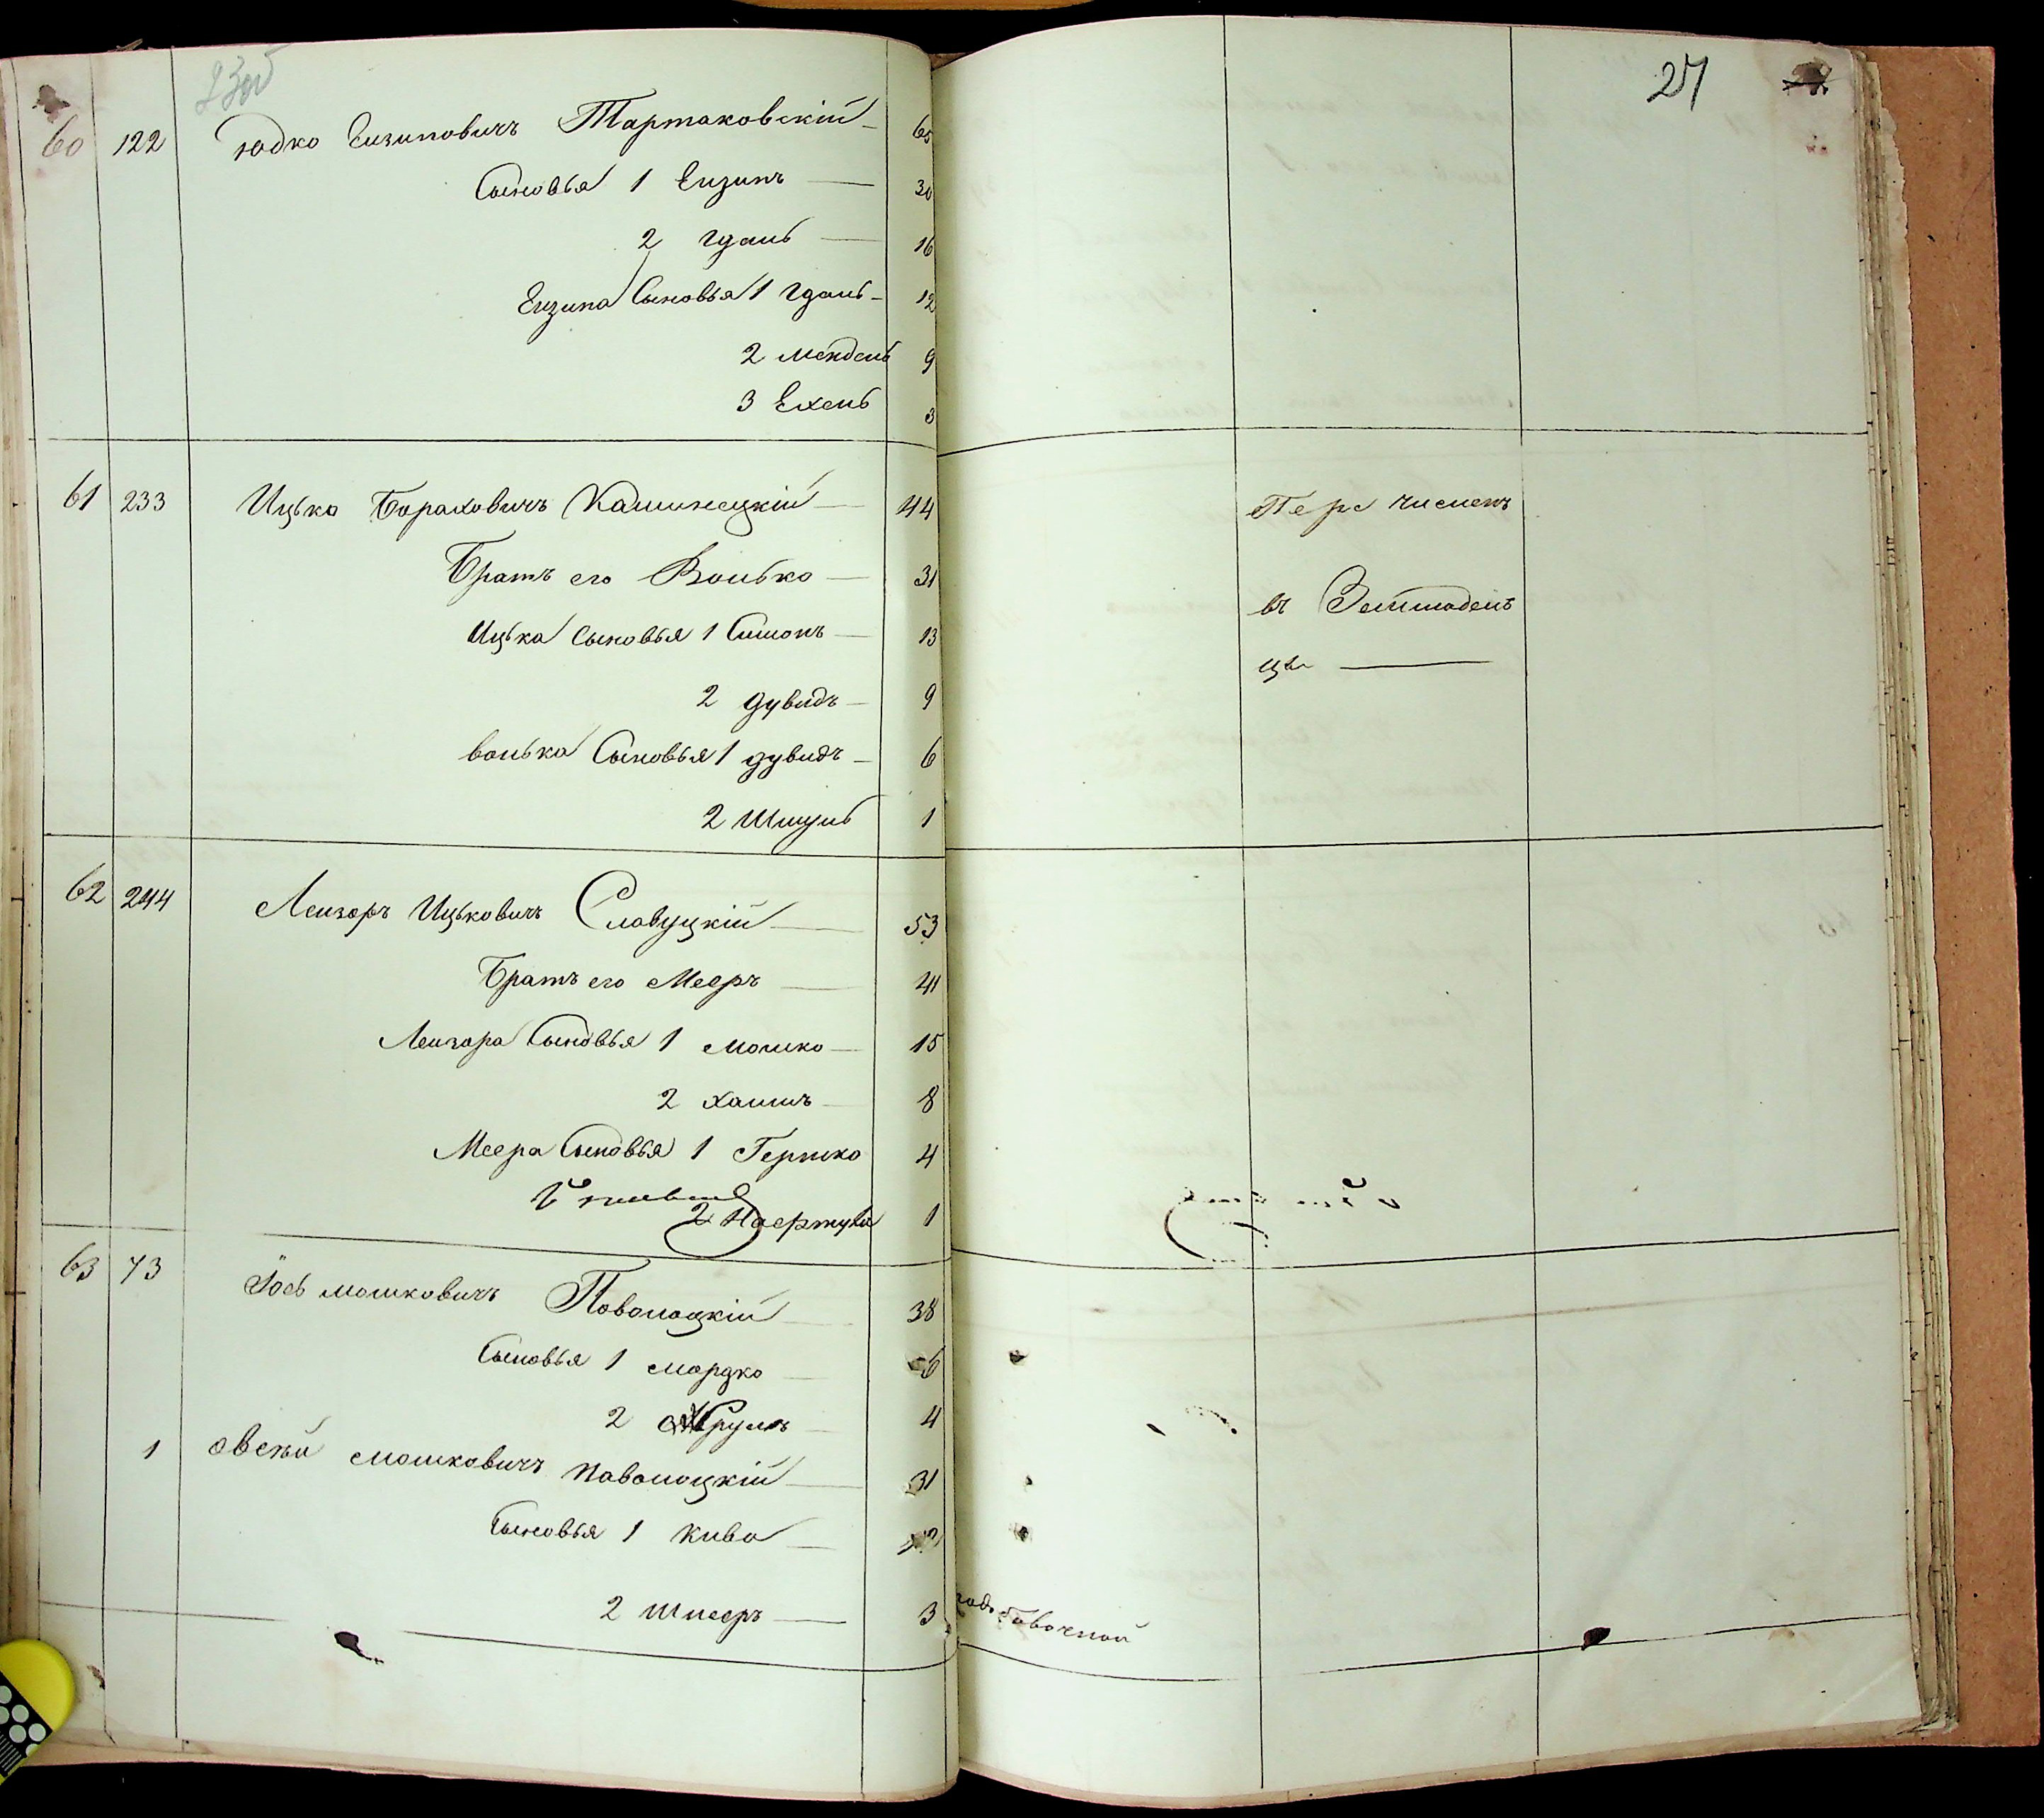 27
60 122 Юдко Еизиковичъ Тартаковскій 65
Сыновья 1 Еизикъ 30
2 Гдаль 16
Еизика Сыновья 1 Гдаль 12
2 Мендель 9
3 Ехель 3
61 233 Ицько Бораховичъ Каминецкій 44
Братъ его Волько 31
Ицька Сыновья 1 Симонъ 13
2 Дувидъ 9
Волька Сыновья 1 Дувидъ 6
2 Шмуль 1
Перечисленъ
въ Земледель
цы
62 244 Леизоръ Ицьковичъ Славуцкій 53
Братъ его Мееръ 41
Леизора Сыновья 1 Мошко 15
2 Хаимъ 4
Меера Сыновья 1 Гершко 4
2 1
63 73 Іось Мошковичъ Поволоцкій 38
Сыновья 1 Мордко 6
2 Сруль 4
1 Овсѣй Мошковичъ Поволоцкій 31
Сыновья 1 Кива
2 Шмееръ 3